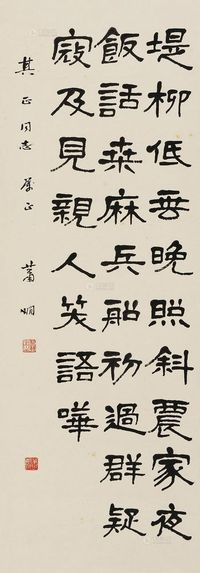 堤柳低垂晚照斜農家夜
飯話桑麻兵船初過群疑
寇及見親人笑語嘩
其正同志屬正
蕭嫻